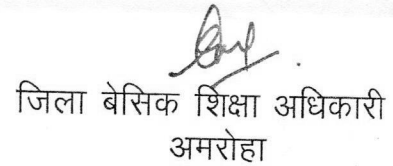 जिला बेसिक शिक्षा अधिकारी
अमरोहा